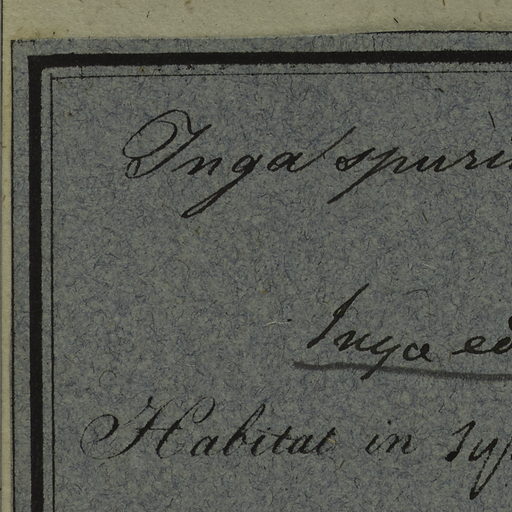 Inga spuri
Inga ed
Habitat in syl